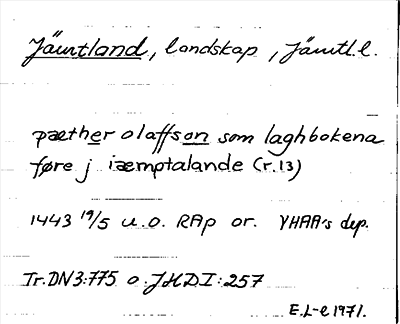 Jämtland, landskap, Jämtl.l.
pæther olaffson som laghbokena
føre j iæmptalande (r.13)
1443 19/5 u.o. RAp or. VHAA's dep.
Tr. DN 3:775 o. JHD I:257
E.L-e 1971.